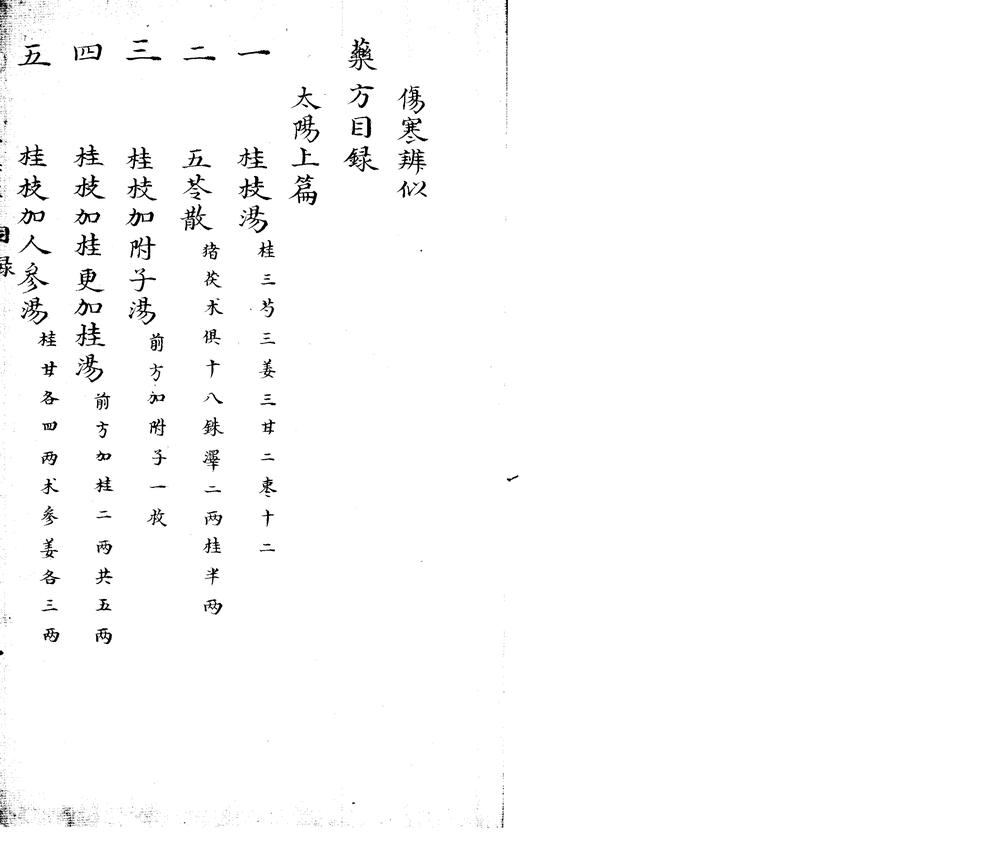 傷寒辨似
藥方目録
太陽上篇
一 桂枝湯 桂三芍三姜三甘二枣十二
二 五苓散 猪茯朮俱十八銖澤二兩桂半兩
三 桂枝加附子湯 前方加附子一枚
四 桂枝加桂更加桂湯 前方加桂二兩共五兩
五 桂枝加人參湯 桂甘各四兩朮參姜各三兩
目録